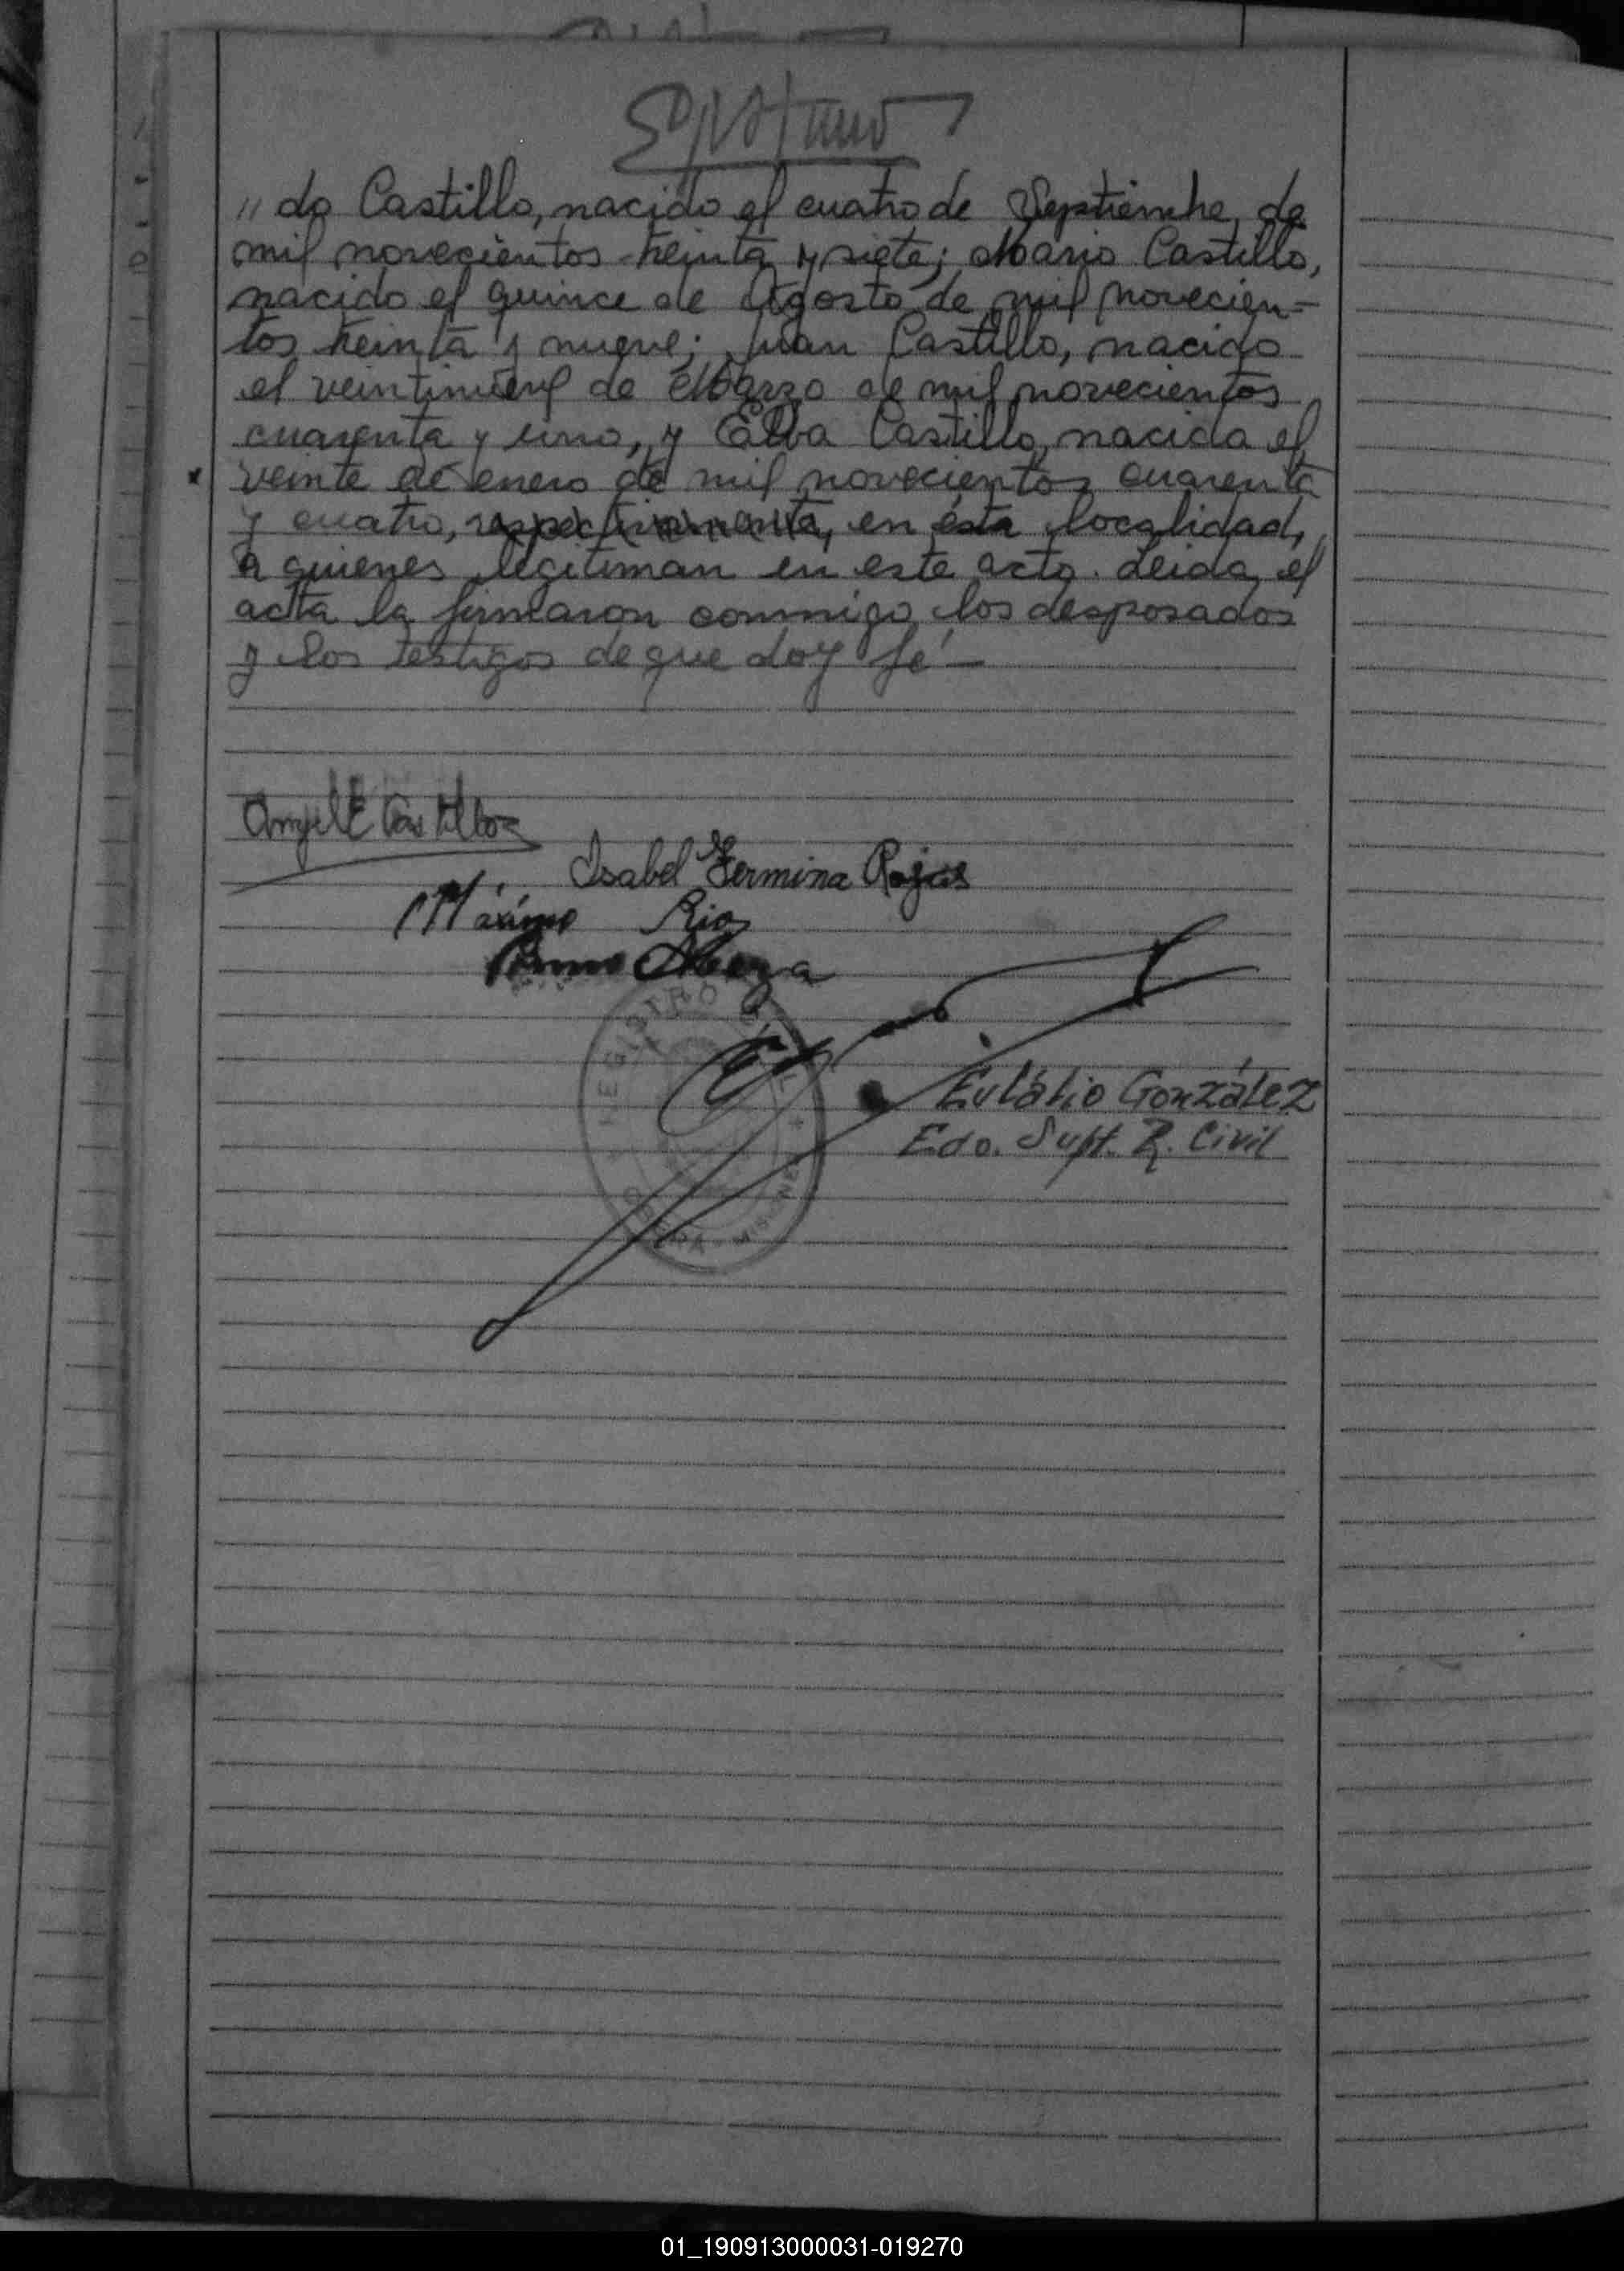 " do Castillo, nacido el cuatro de Septiembre de
mil novecientos treinta y siete; Mario Castillo,
nacido el quince de Agosto de mil novecien=
tos treinta y nueve; Juan Castillo, nacido
el veintinueve de Marzo de mil novecientos
cuarenta y uno, y Elba Castillo, nacida el
veinte de enero de mil novecientos cuarenta
y cuatro, respectivamente, en ésta localidad,
a quienes legitiman en este acto. Leida el
acta la firmaron conmigo los desposados
y los testigos de que doy fé —
Angel E Castillo
Isabel Fermina Rojas
Máximo Rios
REGISTRO
MISIONES
Eulálio González
Edo. Supt. R. Civil
01_190913000031-019270